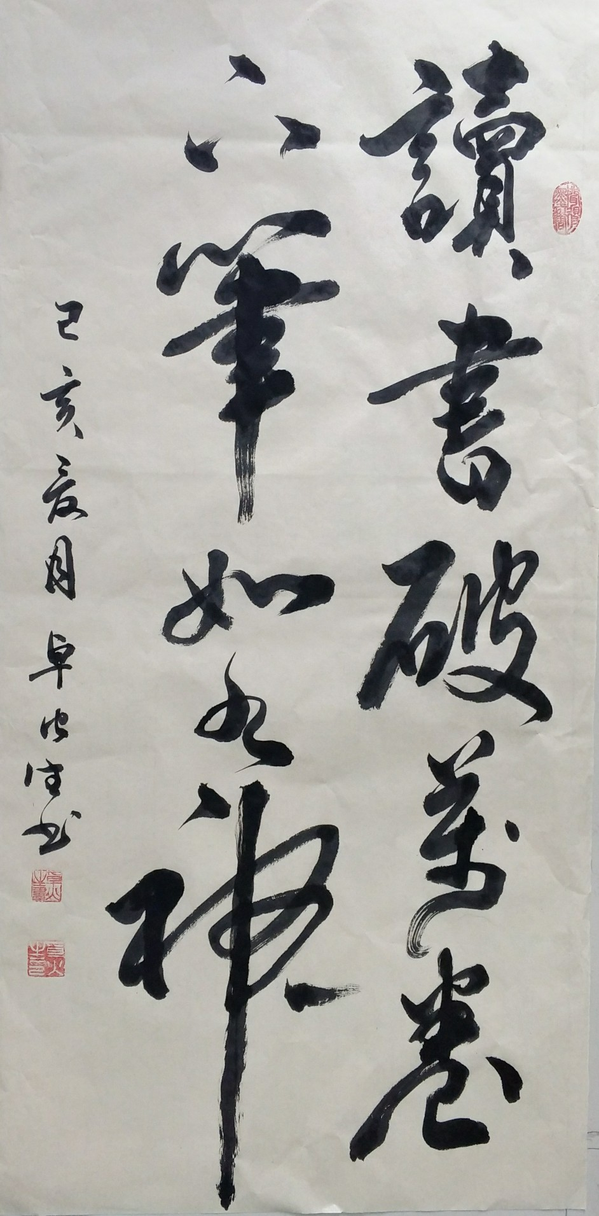 讀書破萬卷
下筆如有神
己亥夏月卓书